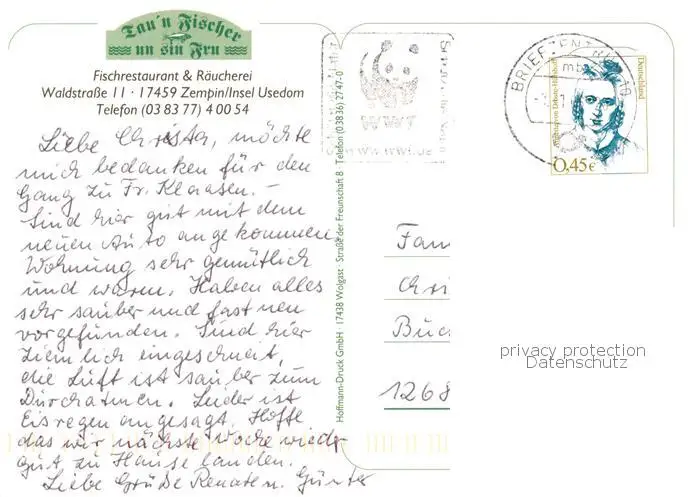 Tau'n Fischer
un sin Fru
Fischrestaurant & Räucherei
Waldstraße 11 · 17459 Zempin/Insel Usedom
Telefon (03 83 77) 4 00 54
Liebe Christa, möchte
mich bedanken für den
Gang zu Fr. Klaasen. –
Sind hier gut mit dem
neuen Auto angekommen.
Wohnung sehr gemütlich
und warm. Haben alles
sehr sauber und fast neu
vorgefunden. Sind hier
ziemlich eingeschneit,
die Luft ist sauber zum
Durchatmen. Leider ist
Eisregen angesagt. Hoffe
das wir nächste Woche wieder
gut zu Hause landen.
Liebe Grüße Renate u. Günter
Hoffmann-Druck GmbH · 17438 Wolgast · Straße der Freundschaft 8 · Telefon (03836) 2747-0
WWF
www.wwf.de
BRIEFZENTRUM
mb
Deutschland
0,45€
Fam
Chri
Buc
1268
privacy protection
Datenschutz